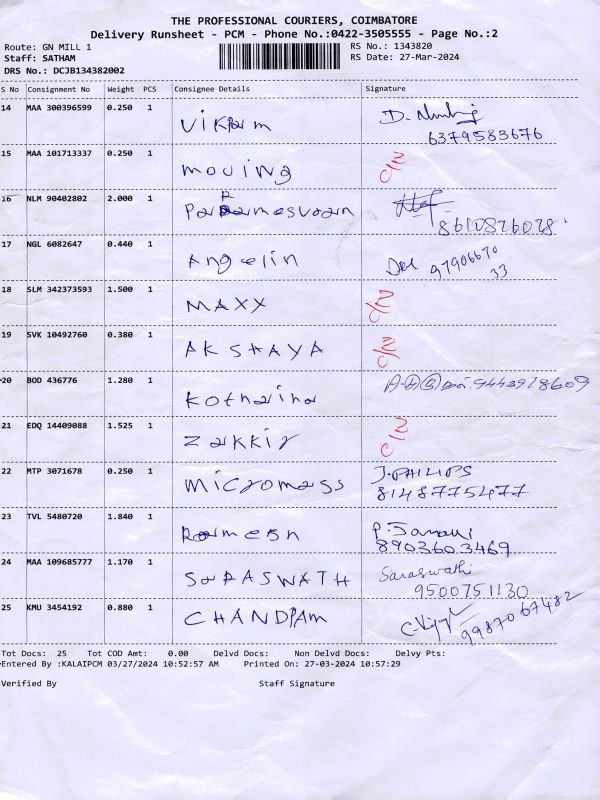 THE PROFESSIONAL COURIERS, COIMBATORE
Delivery Runsheet - PCM - Phone No.:0422-3505555 - Page No.:2
Route: GN MILL 1 RS No.: 1343820
Staff: SATHAM RS Date: 27-Mar-2024
DRS No.: DCJB134382002
S No Consignment No Weight PCS Consignee Details Signature
14 MAA 300396599 0.250 1 Vikram D.
6379583676
15 MAA 101713337 0.250 1 moving
16 NLM 90402802 2.000 1
8610876078
17 NGL 6082647 0.440 1 Angelin
97906670
33
18 SLM 342373593 1.500 1 MAXX
19 SVK 10492760 0.380 1 AKSHAYA
20 BOD 436776 1.280 1 Kothaina
21 EDQ 14409088 1.525 1 Zakkir
22 MTP 3071678 0.250 1 Micromass J.PHILIPS
8148775477
23 TVL 5480720 1.840 1 Ramesh P.
8903603469
24 MAA 109685777 1.170 1 SARASWATH Saraswathi
9500751130
25 KMU 3454192 0.880 1 CHANDRAM
9987067482
Tot Docs: 25 Tot COD Amt: 0.00 Delvd Docs: Non Delvd Docs: Delvy Pts:
Entered By :KALAIPCM 03/27/2024 10:52:57 AM Printed On: 27-03-2024 10:57:29
Verified By Staff Signature